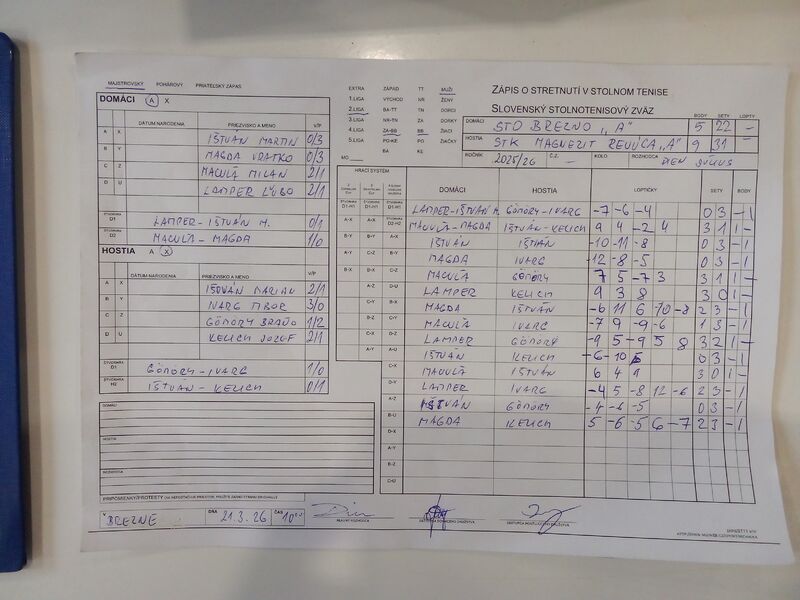 MAJSTROVSKÝ POHÁROVÝ PRIATEĽSKÝ ZÁPAS
EXTRA ZÁPAD TT MUŽI
1.LIGA VÝCHOD NR ŽENY
2.LIGA BA-TT TN DORCI
3.LIGA NR-TN ZA DORKY
4.LIGA ZA-BB BB ŽIACI
5.LIGA PO-KE PO ŽIAČKY
BA KE
MO
ZÁPIS O STRETNUTÍ V STOLNOM TENISE
SLOVENSKÝ STOLNOTENISOVÝ ZVÄZ
BODY SETY LOPTY
DOMÁCI STO BREZNO „A" 5 22 –
HOSTIA STK MAGNEZIT REVÚCA „A" 9 31 –
ROČNÍK 2025/26 Č.Z. – KOLO ROZHODCA
DOMÁCI A X
DÁTUM NARODENIA PRIEZVISKO A MENO V/P
A X IŠTVÁN MARTIN 0/3
B Y MAGDA VRATKO 0/3
C Z MACULA MILAN 2/1
D U LAMPER ĽUBO 2/1
ŠTVORHRA D1 LAMPER-IŠTVÁN M. 0/1
ŠTVORHRA D2 MACULA-MAGDA 1/0
HOSTIA A X
DÁTUM NARODENIA PRIEZVISKO A MENO V/P
A X IŠTVÁN MARIAN 2/1
B Y IVARG TIBOR 3/0
C Z GÖMÖRY BRAŇO 1/2
D U KELICH JOZEF 2/1
ŠTVORHRA GÖMÖRY-IVARG 1/0
ŠTVORHRA H2 IŠTVÁN-KELICH 0/1
HRACÍ SYSTÉM
DOMÁCI HOSTIA LOPTIČKY SETY BODY
LAMPER-IŠTVÁN M. GÖMÖRY-IVARG -7 -6 -4 0 3 – 1
MACULA-MAGDA IŠTVÁN-KELICH 9 4 -2 4 3 1 1 –
IŠTVÁN IŠTVÁN -10 -11 -8 0 3 – 1
MAGDA IVARG -12 -8 -5 0 3 – 1
MACULA GÖMÖRY 7 5 -7 3 3 1 1 –
LAMPER KELICH 9 3 8 3 0 1 –
MAGDA IŠTVÁN -6 11 6 -10 -8 2 3 – 1
MACULA IVARG -7 9 -9 -6 1 3 – 1
LAMPER GÖMÖRY -9 5 -9 5 8 3 2 1 –
IŠTVÁN KELICH -6 -10 0 3 – 1
MACULA IŠTVÁN 6 4 9 3 0 1 –
LAMPER IVARG -4 5 -8 12 -6 2 3 – 1
IŠTVÁN GÖMÖRY -4 -6 -5 0 3 – 1
MAGDA KELICH 5 -6 -5 6 -7 2 3 – 1
DOMÁCI
HOSTIA
ROZHODCA
V BREZNE DŇA 21.3.26 ČAS 10
HLAVNÝ ROZHODCA